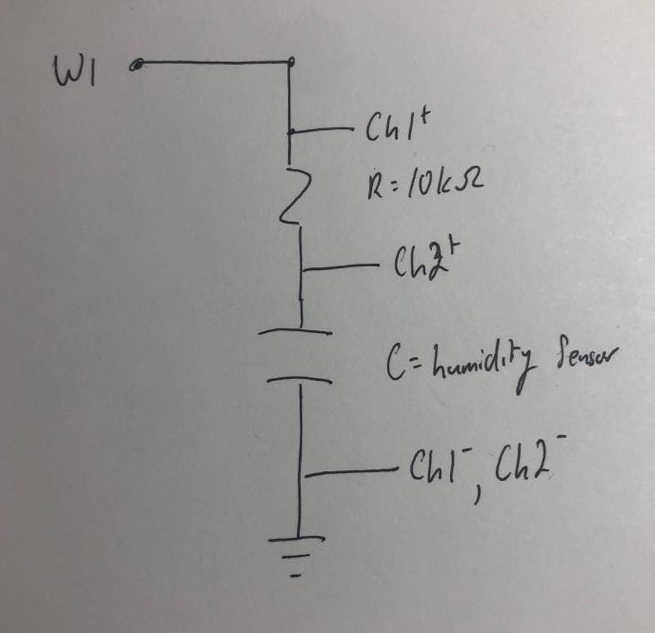 W1
Ch1+
R=10kΩ
Ch2+
C=humidity Sensor
Ch1-, Ch2-